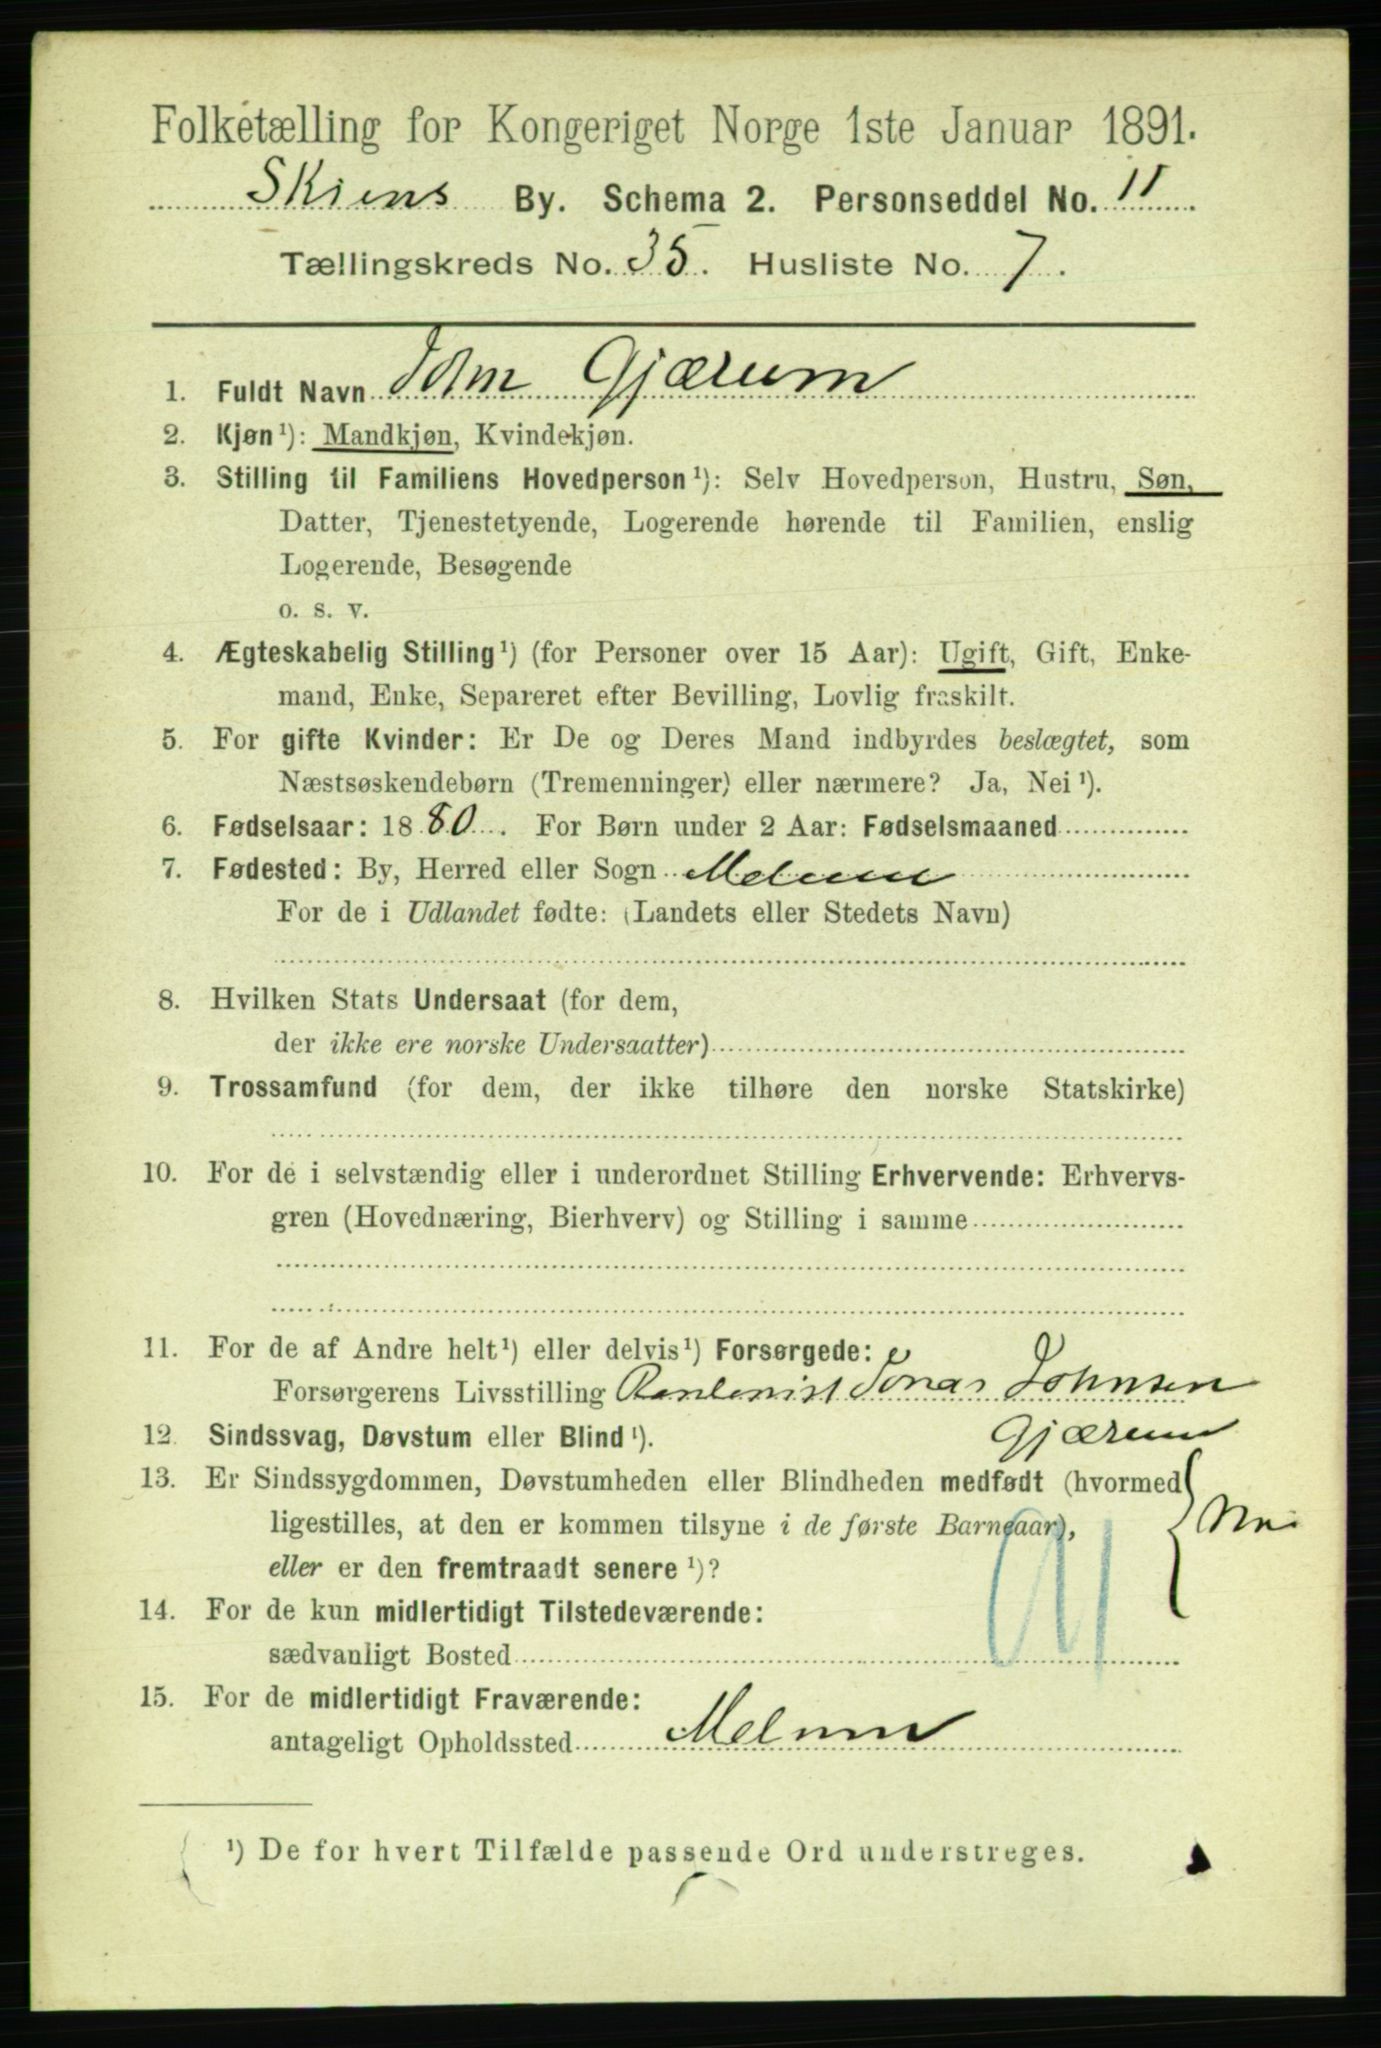 Folketælling for Kongeriget Norge 1ste Januar 1891.
Skiens By. Schema 2. Personseddel No. 11
Tællingskreds No. 35. Husliste No. 7.
1. Fuldt Navn John Gjærum
2. Kjøn¹): Mandkjøn, Kvindekjøn.
3. Stilling til Familiens Hovedperson¹): Selv Hovedperson, Hustru, Søn,
Datter, Tjenestetyende, Logerende hørende til Familien, enslig
Logerende, Besøgende
o. s. v.
4. Ægteskabelig Stilling¹) (for Personer over 15 Aar): Ugift, Gift, Enke-
mand, Enke, Separeret efter Bevilling, Lovlig fraskilt.
5. For gifte Kvinder: Er De og Deres Mand indbyrdes beslægtet, som
Næstsøskendebørn (Tremenninger) eller nærmere? Ja, Nei¹).
6. Fødselsaar: 1880. For Børn under 2 Aar: Fødselsmaaned
7. Fødested: By, Herred eller Sogn Melum
For de i Udlandet fødte: (Landets eller Stedets Navn)
8. Hvilken Stats Undersaat (for dem,
der ikke ere norske Undersaatter)
9. Trossamfund (for dem, der ikke tilhøre den norske Statskirke)
10. For de i selvstændig eller i underordnet Stilling Erhvervende: Erhvervs-
gren (Hovednæring, Bierhverv) og Stilling i samme
11. For de af Andre helt¹) eller delvis¹) Forsørgede:
Forsørgerens Livsstilling Rentenist Jonas Johnsen
12. Sindssvag, Døvstum eller Blind¹). Gjærum
13. Er Sindssygdommen, Døvstumheden eller Blindheden medfødt (hvormed
ligestilles, at den er kommen tilsyne i de første Barneaar), Nei
eller er den fremtraadt senere¹)?
14. For de kun midlertidigt Tilstedeværende:
sædvanligt Bosted
15. For de midlertidigt Fraværende:
antageligt Opholdssted Melum
¹) De for hvert Tilfælde passende Ord understreges.